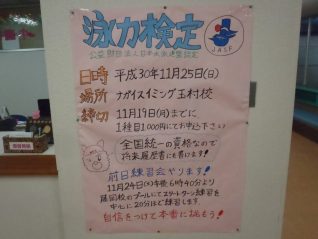 泳力検定
公益財団法人日本水泳連盟認定
JASF
日時 平成30年11月25日(日)
場所 ナガイスイミング玉村校
締切 11月19日(月)までに
1種目1,000円にてお申込下さい
全国統一の資格なので
将来履歴書にも書けます!
前日練習会やります!
11月24日(土)午後6時40分より
藤岡校のプールにてスタートターン練習を
中心に20分ほど練習します
自信をつけて本番に挑もう!